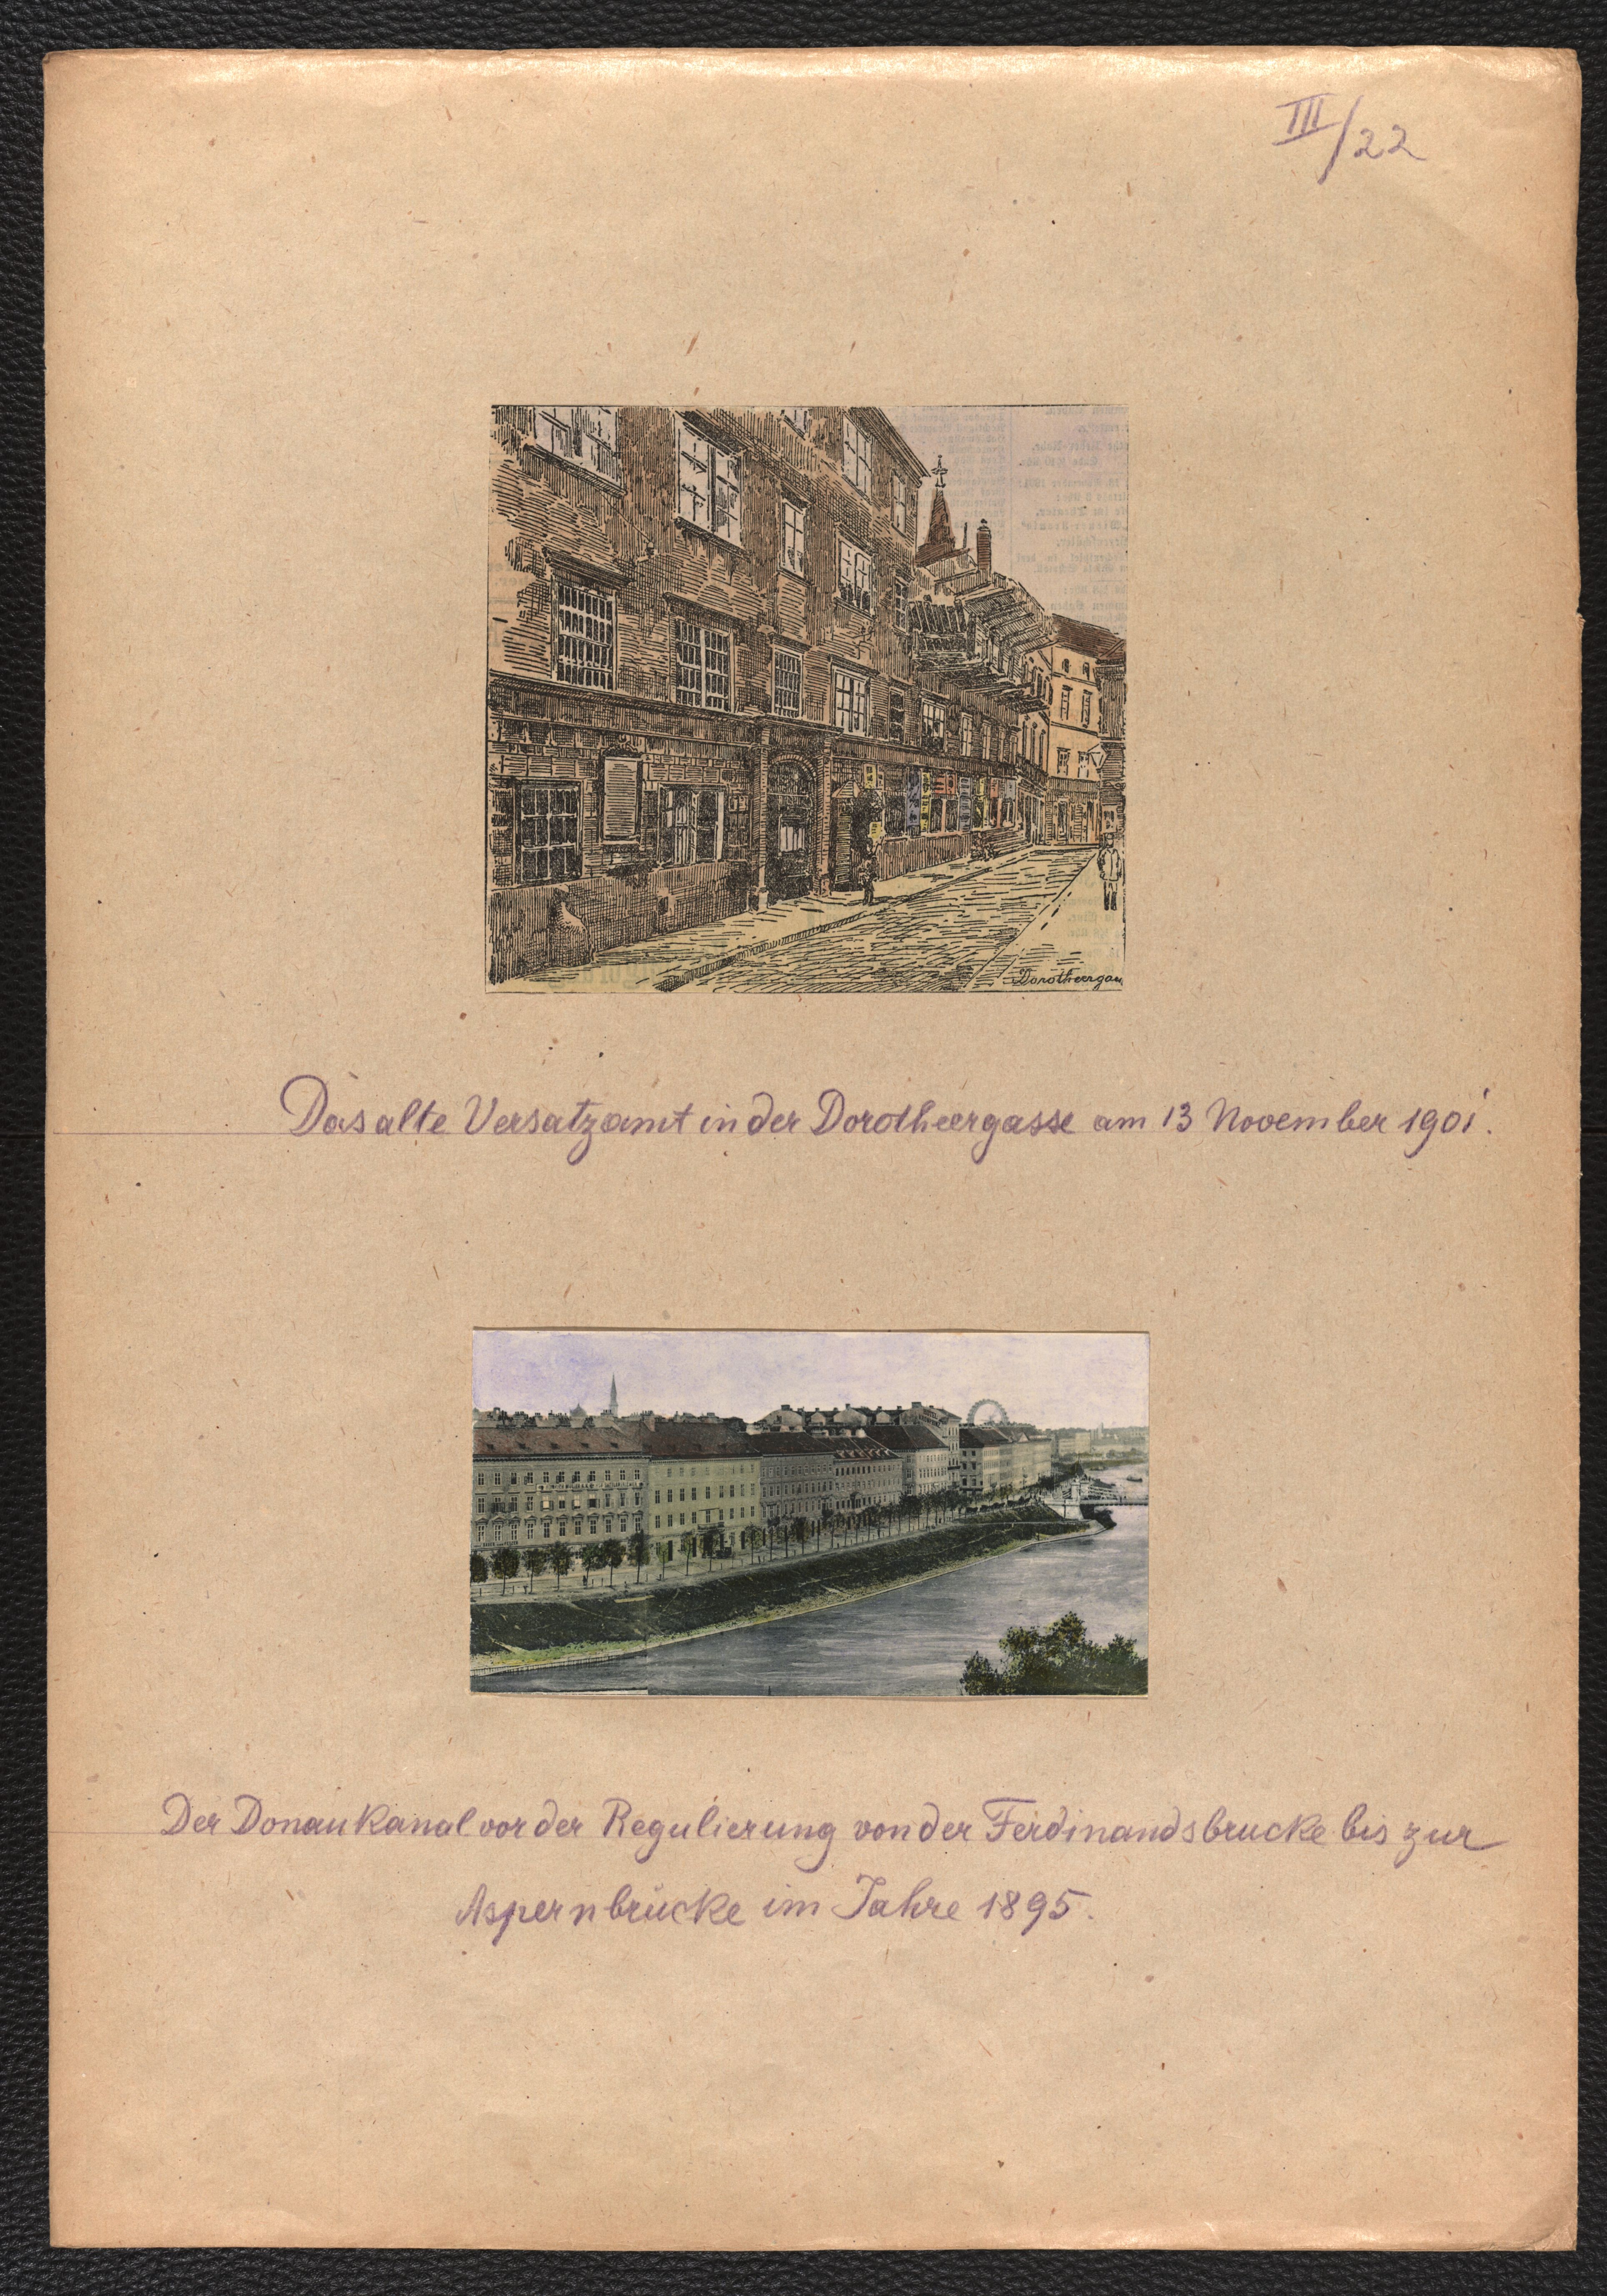 III/22
Dorotheergas
Das alte Versatzamt in der Dorotheergasse am 13 November 1901.
Der Donaukanal vor der Regulierung von der Ferdinandsbrücke bis zur
Aspernbrücke im Jahre 1895.